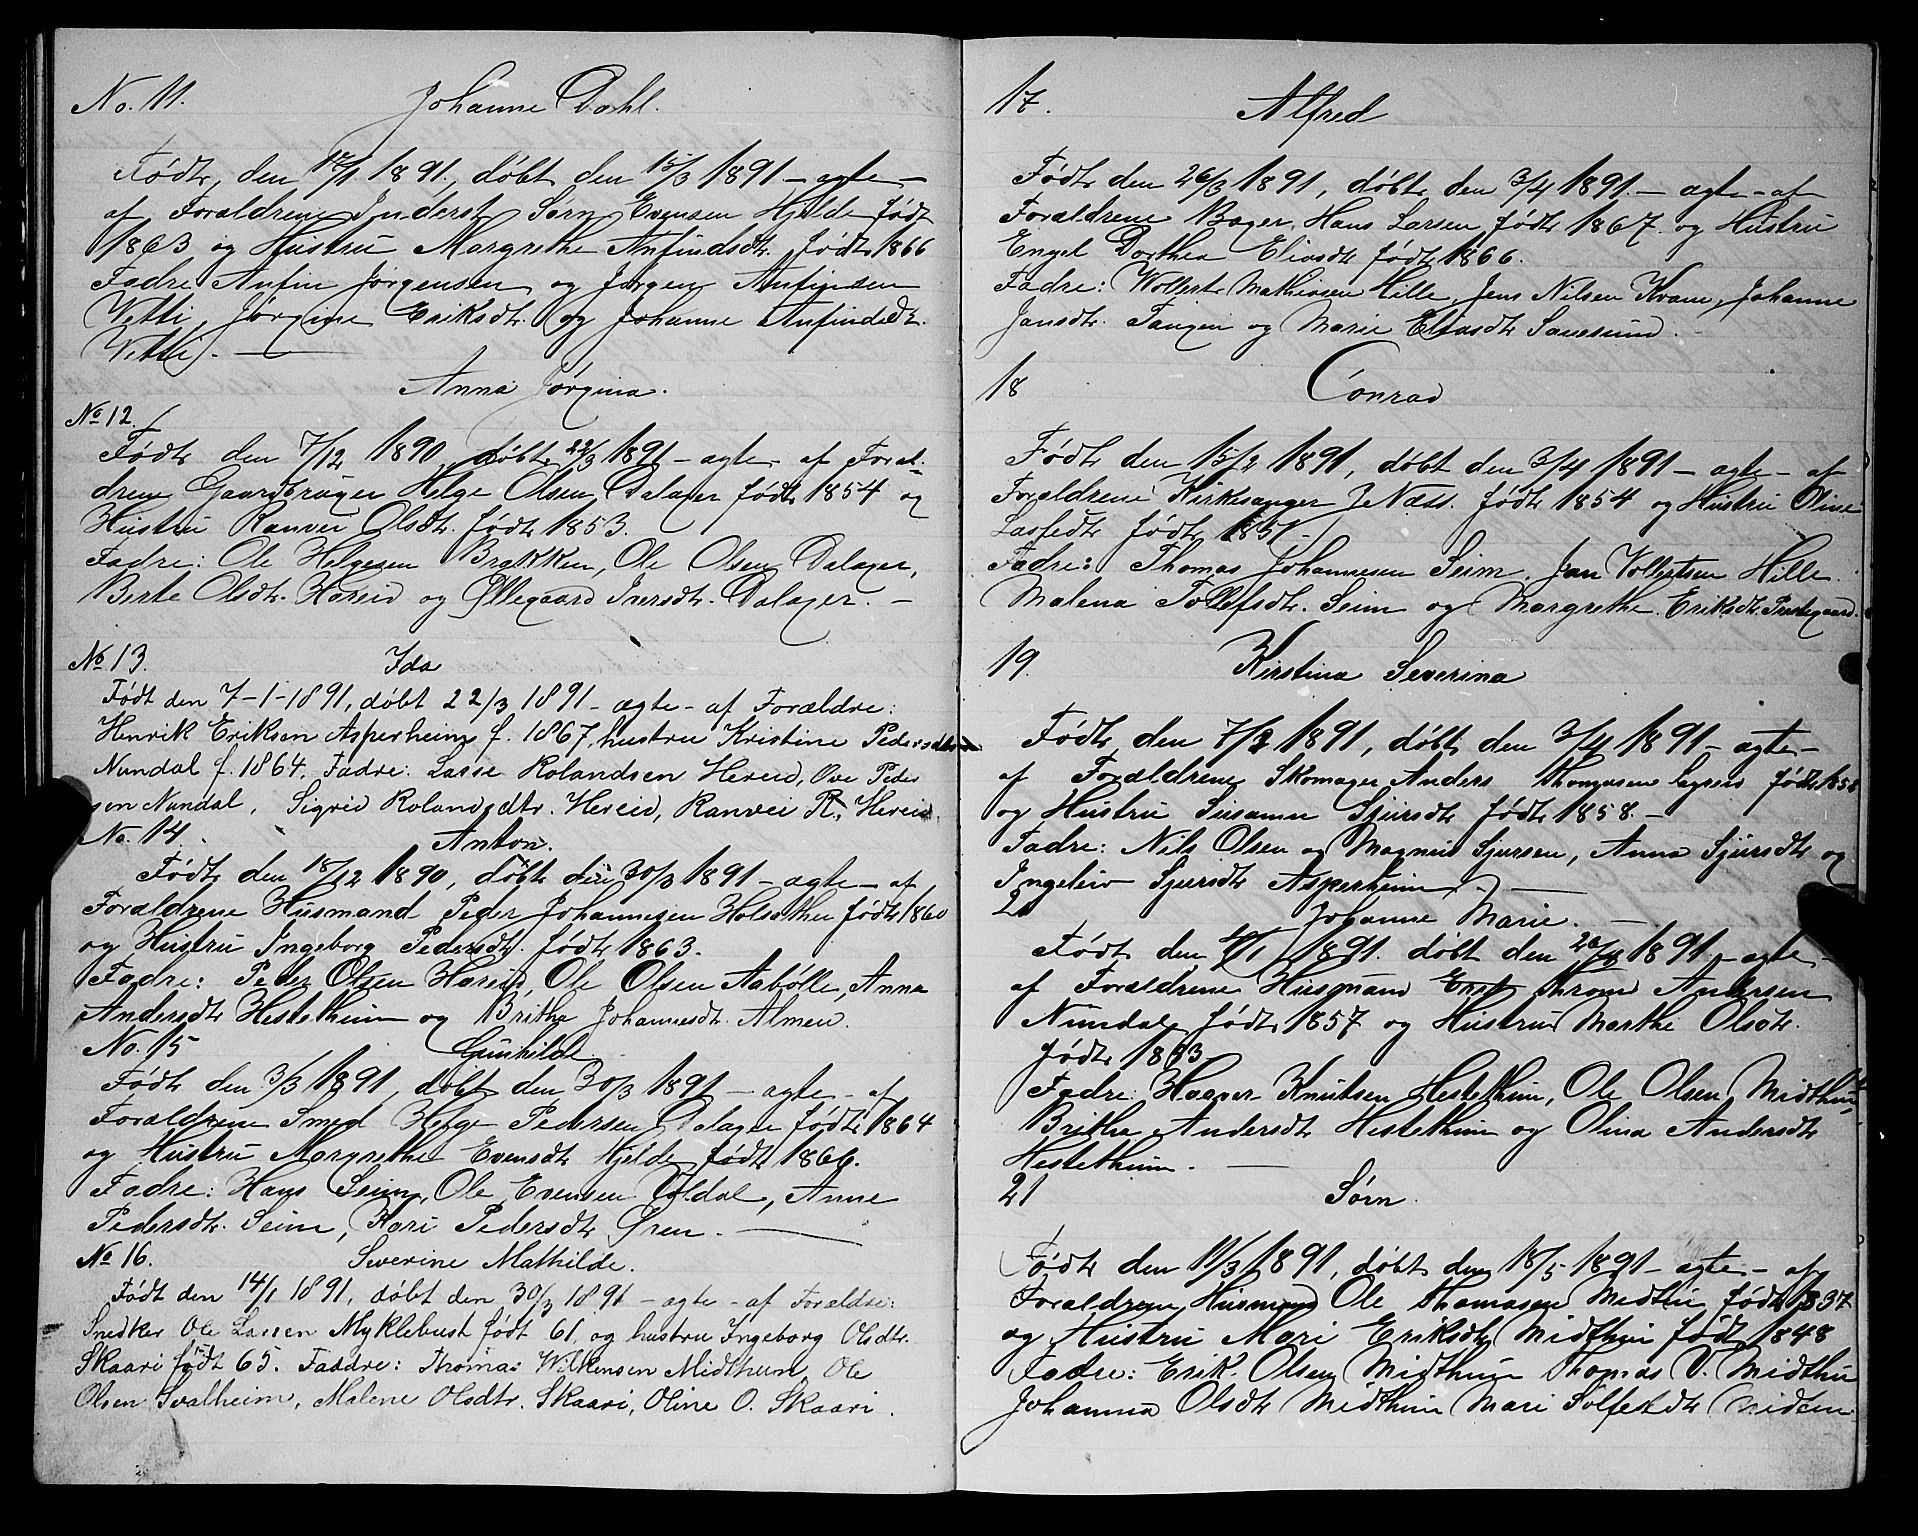 No. 11. Johanne Dahl.
Født den 17/1 1891, døbt den 15/3 1891 – ægte –
af Forældrene Inderst Sørn Evensen Hjelde født
1863 og Hustru Margrethe Anfindsdt. født 1866
Fadre Anfin Jørgensen og Jørgen Anfinsen
Vetti, Jørgine Eriksdt. og Johanne Anfindsdt.
Vetti. –
Anna Jørgina.
No 12.
Født den 7/12 1890 døbt 22/3 1891 – ægte – af Foræl-
drene Gaardbruger Helge Olsen Dalager født 1854 og
Hustru Ranvei Olsdt. født 1853.
Fadre: Ole Helgesen Brækken, Ole Olsen Dalager,
Berte Olsdt. Hæreid og Øllegaard Iversdt. Dalager. –
No 13. Ida
Født den 7-1-1891, døbt 22/3 1891 – ægte – af Forældre:
Henrik Eriksen Asperheim f. 1867, hustru Kristine Pedersdtr
Nundal f. 1864. Fadre: Lasse Rolandsen Hereid, Ove Peder
sen Nundal, Sigrid Rolandsdtr. Hereid, Ranvei R. Hereid.
No. 14. Anton.
Født den 18/12 1890, døbt den 30/3 1891 – ægte – af
Forældrene Husmand Peder Johannesen Holsæther født 1860
og Hustru Ingeborg Pedersdt. født 1863.
Fadre: Peder Olsen Hæreid, Ole Olsen Aabølle, Anna
Andersdt Hestethun og Britha Johannesdt. Almen.
No. 15 Gunhilde
Født den 3/3 1891, døbt den 30/3 1891 – ægte – af
Forældrene Smed Helge Pedersen Dalager født 1864
og Hustru Margrethe Evensdt Hjelde født 1866.
Fadre: Hans Seim, Ole Evensen Voldal, Anne
Pedersdt. Seim, Kari Pedersdt Øren. –
No 16. Severine Mathilde.
Født den 14/1 1891, døbt den 30/3 1891 – ægte – af Forældre:
Snedker Ole Lassen Myklebust født 61, og hustru Ingeborg Olsdtr.
Skaari født 65. Faddre: Thomas Wilkensen Midthun, Ole
Olsen Svalheim, Malene Olsdtr. Skaari, Oline O. Skaari.
17. Alfred
Født den 26/3 1891, døbt den 3/4 1891. – ægte – af
Forældrene Bager Hans Larsen født 1867. og Hustru
Engel Dorthea Eliasdt født 1866.
Fadre: Wollert Mathiasen Hille, Jens Nilsen Kvam, Johanne
Jansdt. Tangen og Marie Eliasdt Sauesund. –
18 Conrad
Født den 15/2 1891, døbt den 3/4 1891 – ægte – af
Forældrene Kirkesanger J Næss. født 1854 og Hustru Oline
født 1851 –
Fadre: Thomas Johannesen Seim, Jan Vollertsen Hille.
Malena Tollefsdt. Seim og Margrethe Eriksdt
19. Kirstina Severina
Født den 7/3 1891, døbt den 3/4 1891 – ægte –
af Forældrene Skomager Anders Thomasen født 1858
og Hustru Susanne Sjursdt født 1858. –
Fadre: Nils Olsen og Magnus Sjursen, Anna Sjursdt og
Ingeleiv Sjursdt Asperheim. –
20 Johanne Marie. –
Født den 1891. døbt den 26/4 1891 – ægte –
af Forældrene Husmand Thrond Andersen
Nundal født 1857 og Hustru Marthe Olsdt.
født 1853
Fadre: Haaver Knutsen Hestethun, Ole Olsen Midthun,
Brithe Andersdt Hestethun og Olina Andersdt
Hestethun. –
21 Sørn.
Født den 11/3 1891, døbt den 18/5 1891 – ægte – af
Forældrene Husmand Ole Thomasen Midthun født 1837
og Hustru Mari Eriksdt Midthun født 1848
Fadre: Erik Olsen Midthun Thomas V. Midthun
Johanna Olsdt Midthun Mari Midtun